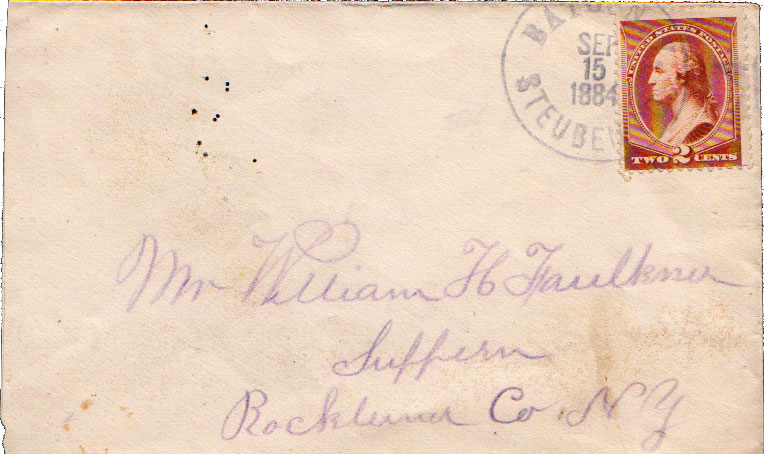 SEP
15
1884
UNITED STATES POSTAGE
TWO 2 CENTS
Mr William H Faulkner
Suffern
Rockland Co NY